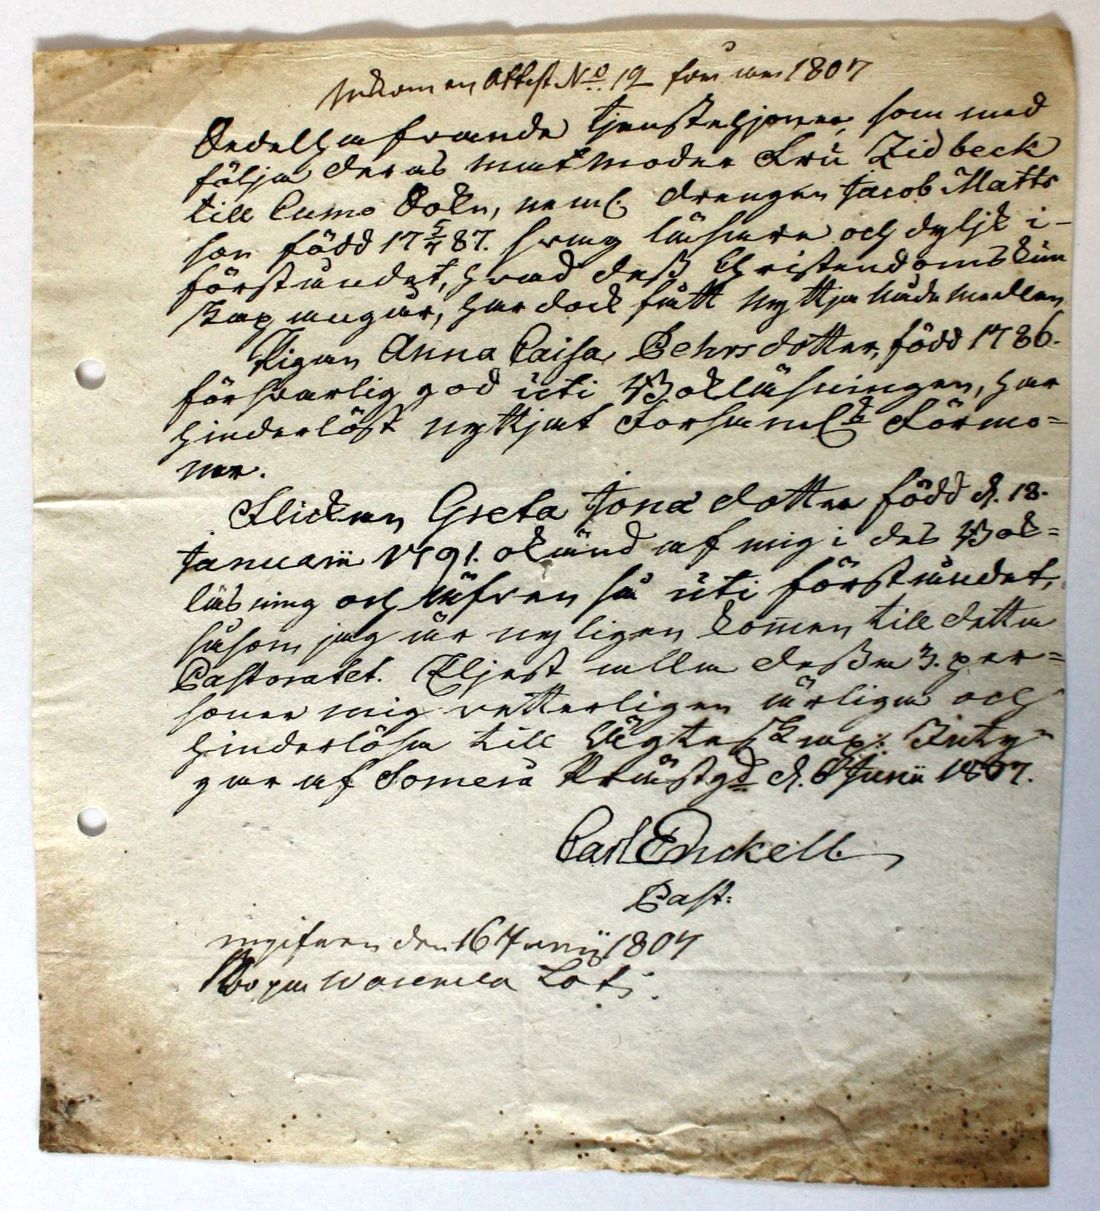 Inkommen Attest No 12 för år 1807
Bedelhafvande tjenstehjoner, som med
följa deras matmoder Fru Zidbeck
till Cumo Sokn, neml. drengen Jacob Matts
son född 17 5/4 87. svag läsare och dylik i
förståndet, hvad dess Christendomskun
skap angår, har dock fått nyttja nådemedlen
Pigan Anna Caisa Pehrsdotter, född 1786.
försvarlig god uti Bokläsningen, har
hinderlöst nyttjat Församlgs Förmo=
ner.
Flickan Greta Jona dotter född d. 18.
Januarii 1791. okänd af mig i des Bok=
läsning och äfven så uti förståndet,
såsom jag är nyligen kommen till detta
Pastoratet. Eljest alla dessa 3. per=
soner mig vetterligen ärliga och
hinderlösa till Ägteskap; Inty=
gar af Somero Prästgd d. 8 Junii 1807.
Carl Enckell
Past:
ingifven den 16 Junij 1807